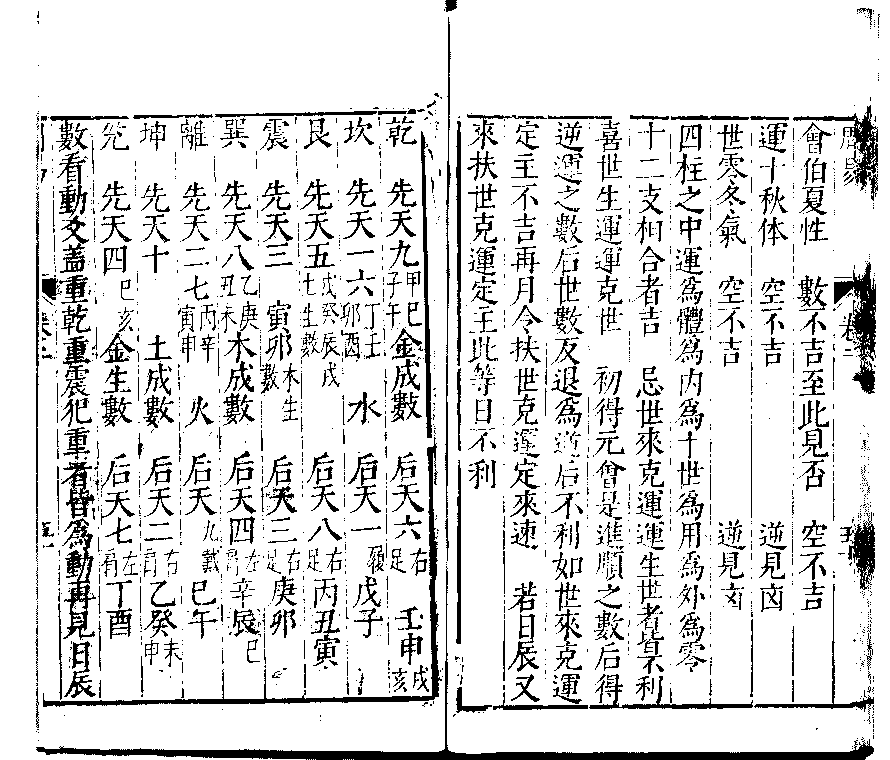 會伯夏性　數不吉至此見否　空不吉
運十秋体　空不吉　逆見凶
世零冬氣　空不吉　逆見凶
四柱之中運為體為内為十世為用為外為零
十二支相合者吉　忌世來克運運生世者皆不利
喜世生運運克世　初得元會是進順之數后得
逆運之數后世數反退為逆后不利如世來克運
定主不吉再月令扶世克運定來速　若日辰又
來扶世克運定主此等日不利
乾　先天九甲巳子午金成數　后天六右足　壬申戌亥
坎　先天一六丁壬卯酉　水　后天一履　戊子
艮　先天五戊癸辰戌土生數　后天八右足　丙丑寅
震　先天三　寅卯木生數　后天三右足　庚卯
巽　先天八乙庚丑未木成數　后天四左肩　辛辰巳
離　先天二七丙辛寅申　火　后天九戴　巳午
坤　先天十　土成數　后天二右肩　乙癸未申
兊　先天四巳亥　金生數　后天七左肩　丁酉
數看動爻蓋重乾重震犯重者皆為動再見日辰